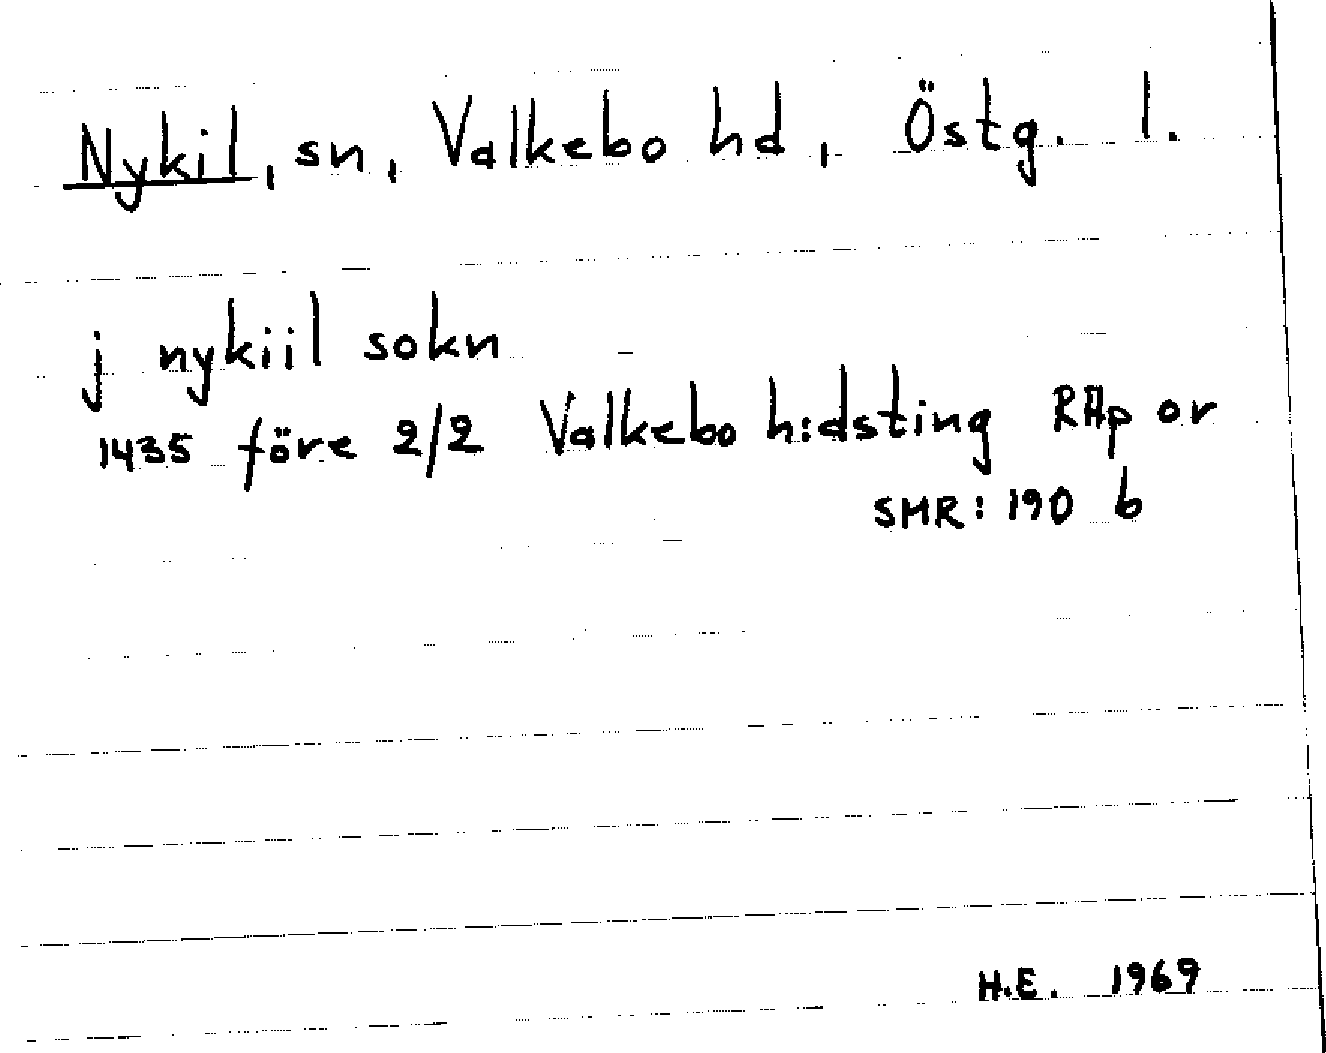 Nykil, sn, Valkebo hd, Östg. l.
j nykiil sokn
1435 före 2/2 Valkebo h:dsting RAp or
SMR: 190 b
H.E. 1969